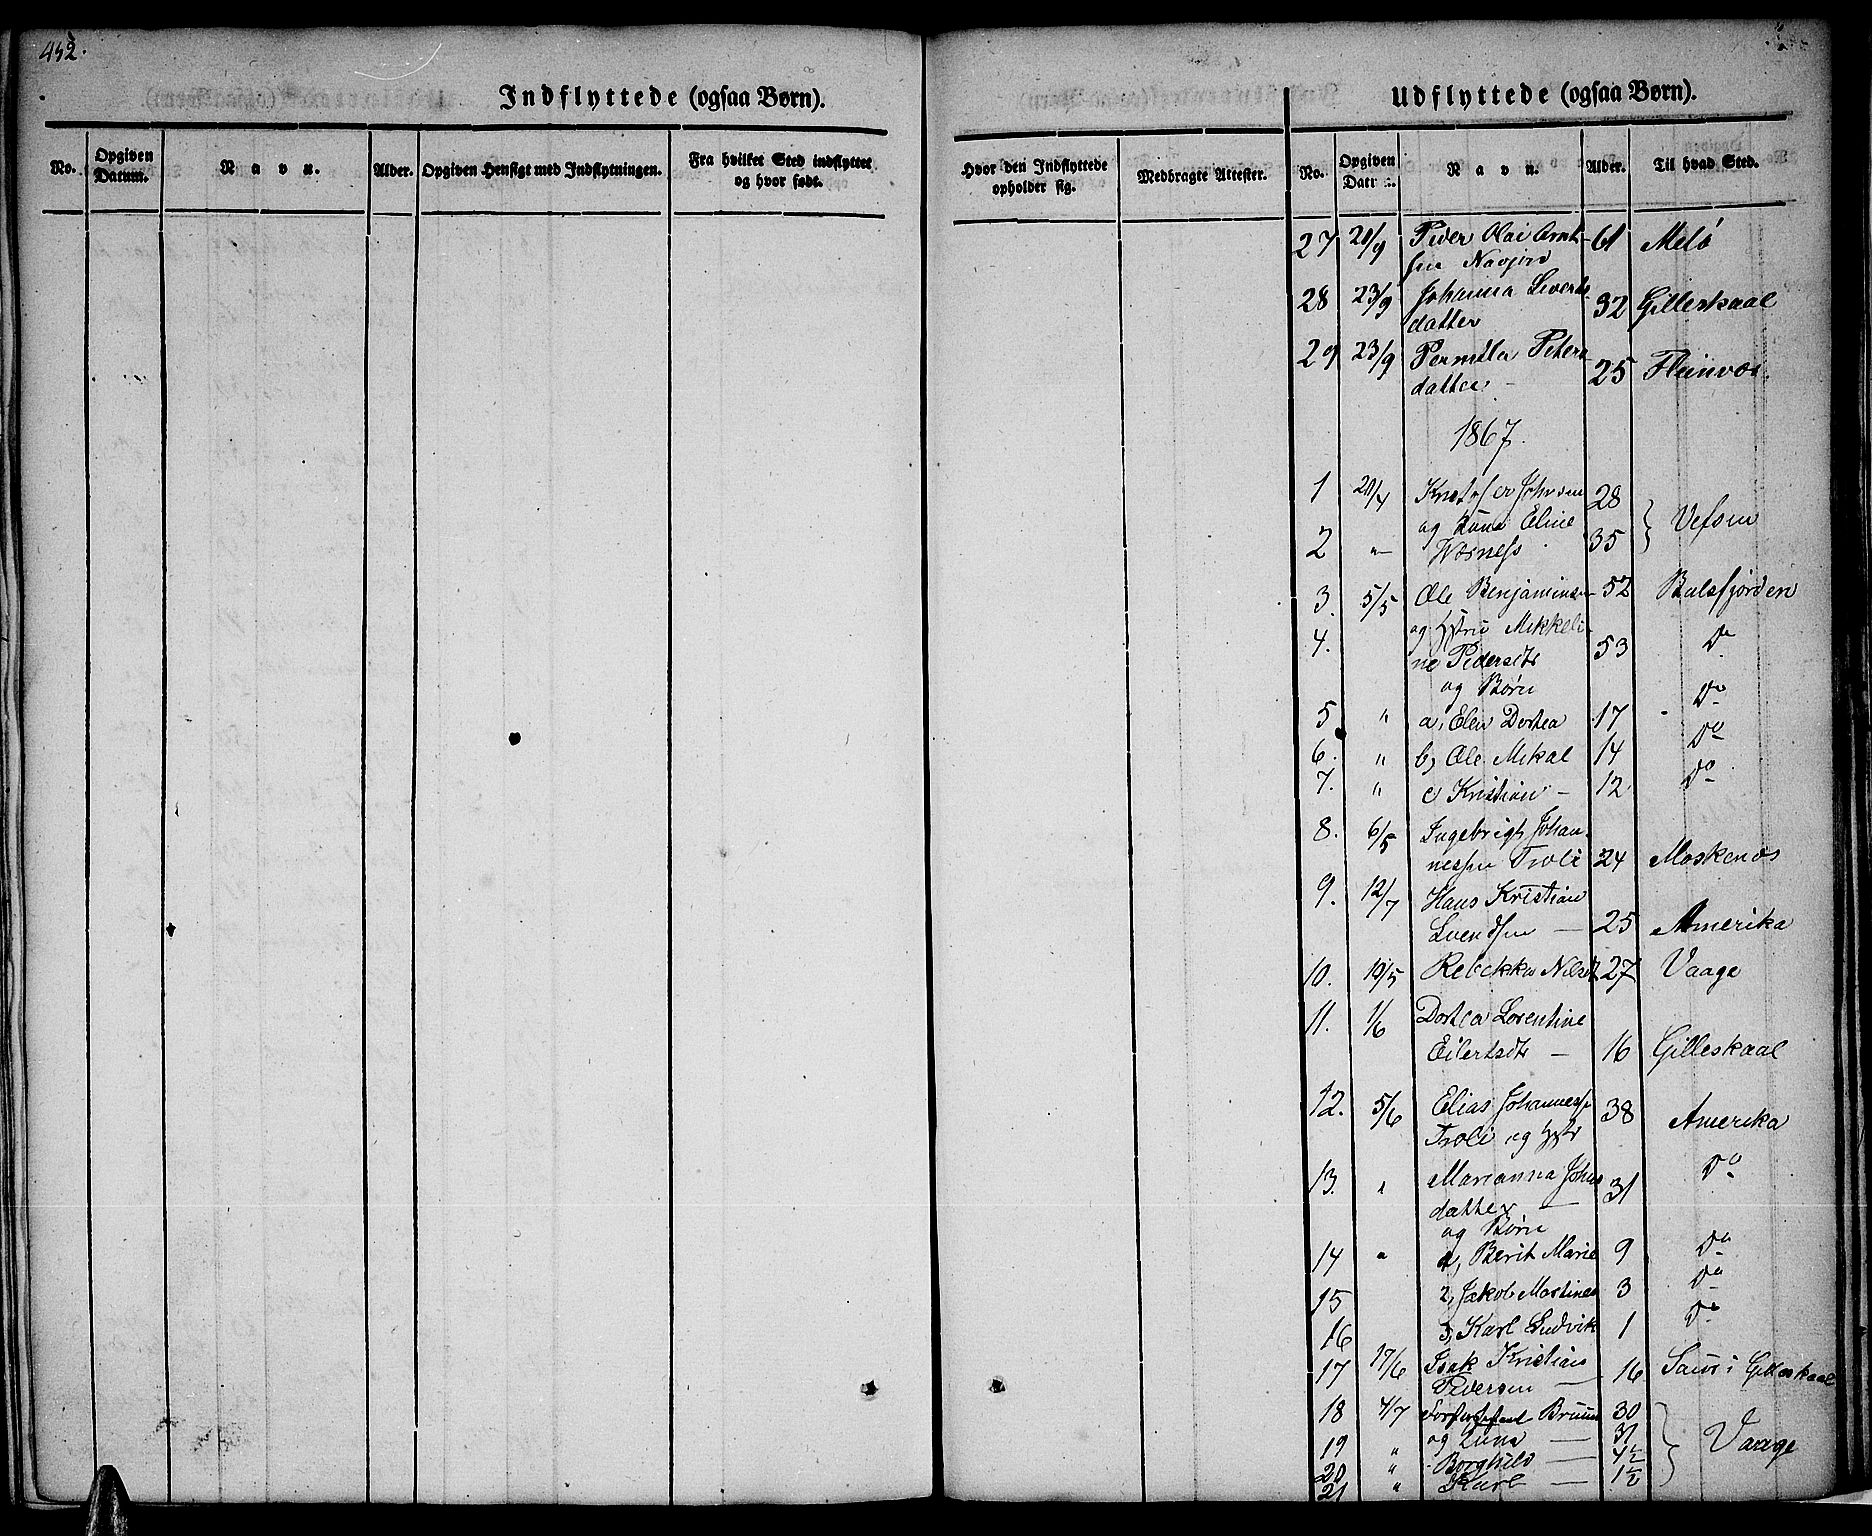 452.
Indflyttede (ogsaa Børn).
No.
Opgiven Datum.
Navn.
Alder.
Opgiven Hensigt med Indflytningen.
Fra hvilket Sted indflyttet og hvor født.
Hvor den Indflyttede opholder sig.
Medbragte Attester.
Udflyttede (ogsaa Børn).
No.
Opgiven Dat
Navn.
Alder.
Til hvad Sted.
27 20/9 Peder Olai Arnt- 61 Melö
sen Navjord
28 23/9 Johanna Siverts- 32 Gilleskaal
datter
29 23/9 Pernille Peters- 25 Fleinvær
datter -
1867.
1 20/4 Kristofer Johnsen 28
og Kone Eline } Vefsen
2 " Wærness 35
3. 5/5 Ole Benjaminsen 52 Balsfjorden
4. og Hstru Mikkeli-
ne Pedersdtr 53 Do
og Børn
5 " a, Elen Dortea 17 Do
6. " b, Ole Mikal 14 Do
7. " c Kristian - 12 Do
8. 6/5 Ingebrigt Johan-
nessen Troli 24 Moskenæs
9. 12/7 Hans Kristian
Svendsen - 25 Amerika
10. 19/5 Rebekka Nilsd 27 Vaage
11. 1/6 Dortea Lorentine
Eilertsdtr - 16 Gilleskaal
12. 5/6 Elias Johannesse 38 Amerika
Troli og Hstr
13. " Marianna Johns
datter - 31 Do
og Børn
14 " 1, Berit Marie 9 Do
15 2, Jakob Martines 3 Do
16 3, Karl Ludvik 1 Do
17 17/6 Isak Kristian
Pedersen - 16 Saur i Gilleskaal
18 4/7 Bruun 30
19 " og Kone - 31 } Vaage
20 " Borghild - 4½
21 " Karl - 1½